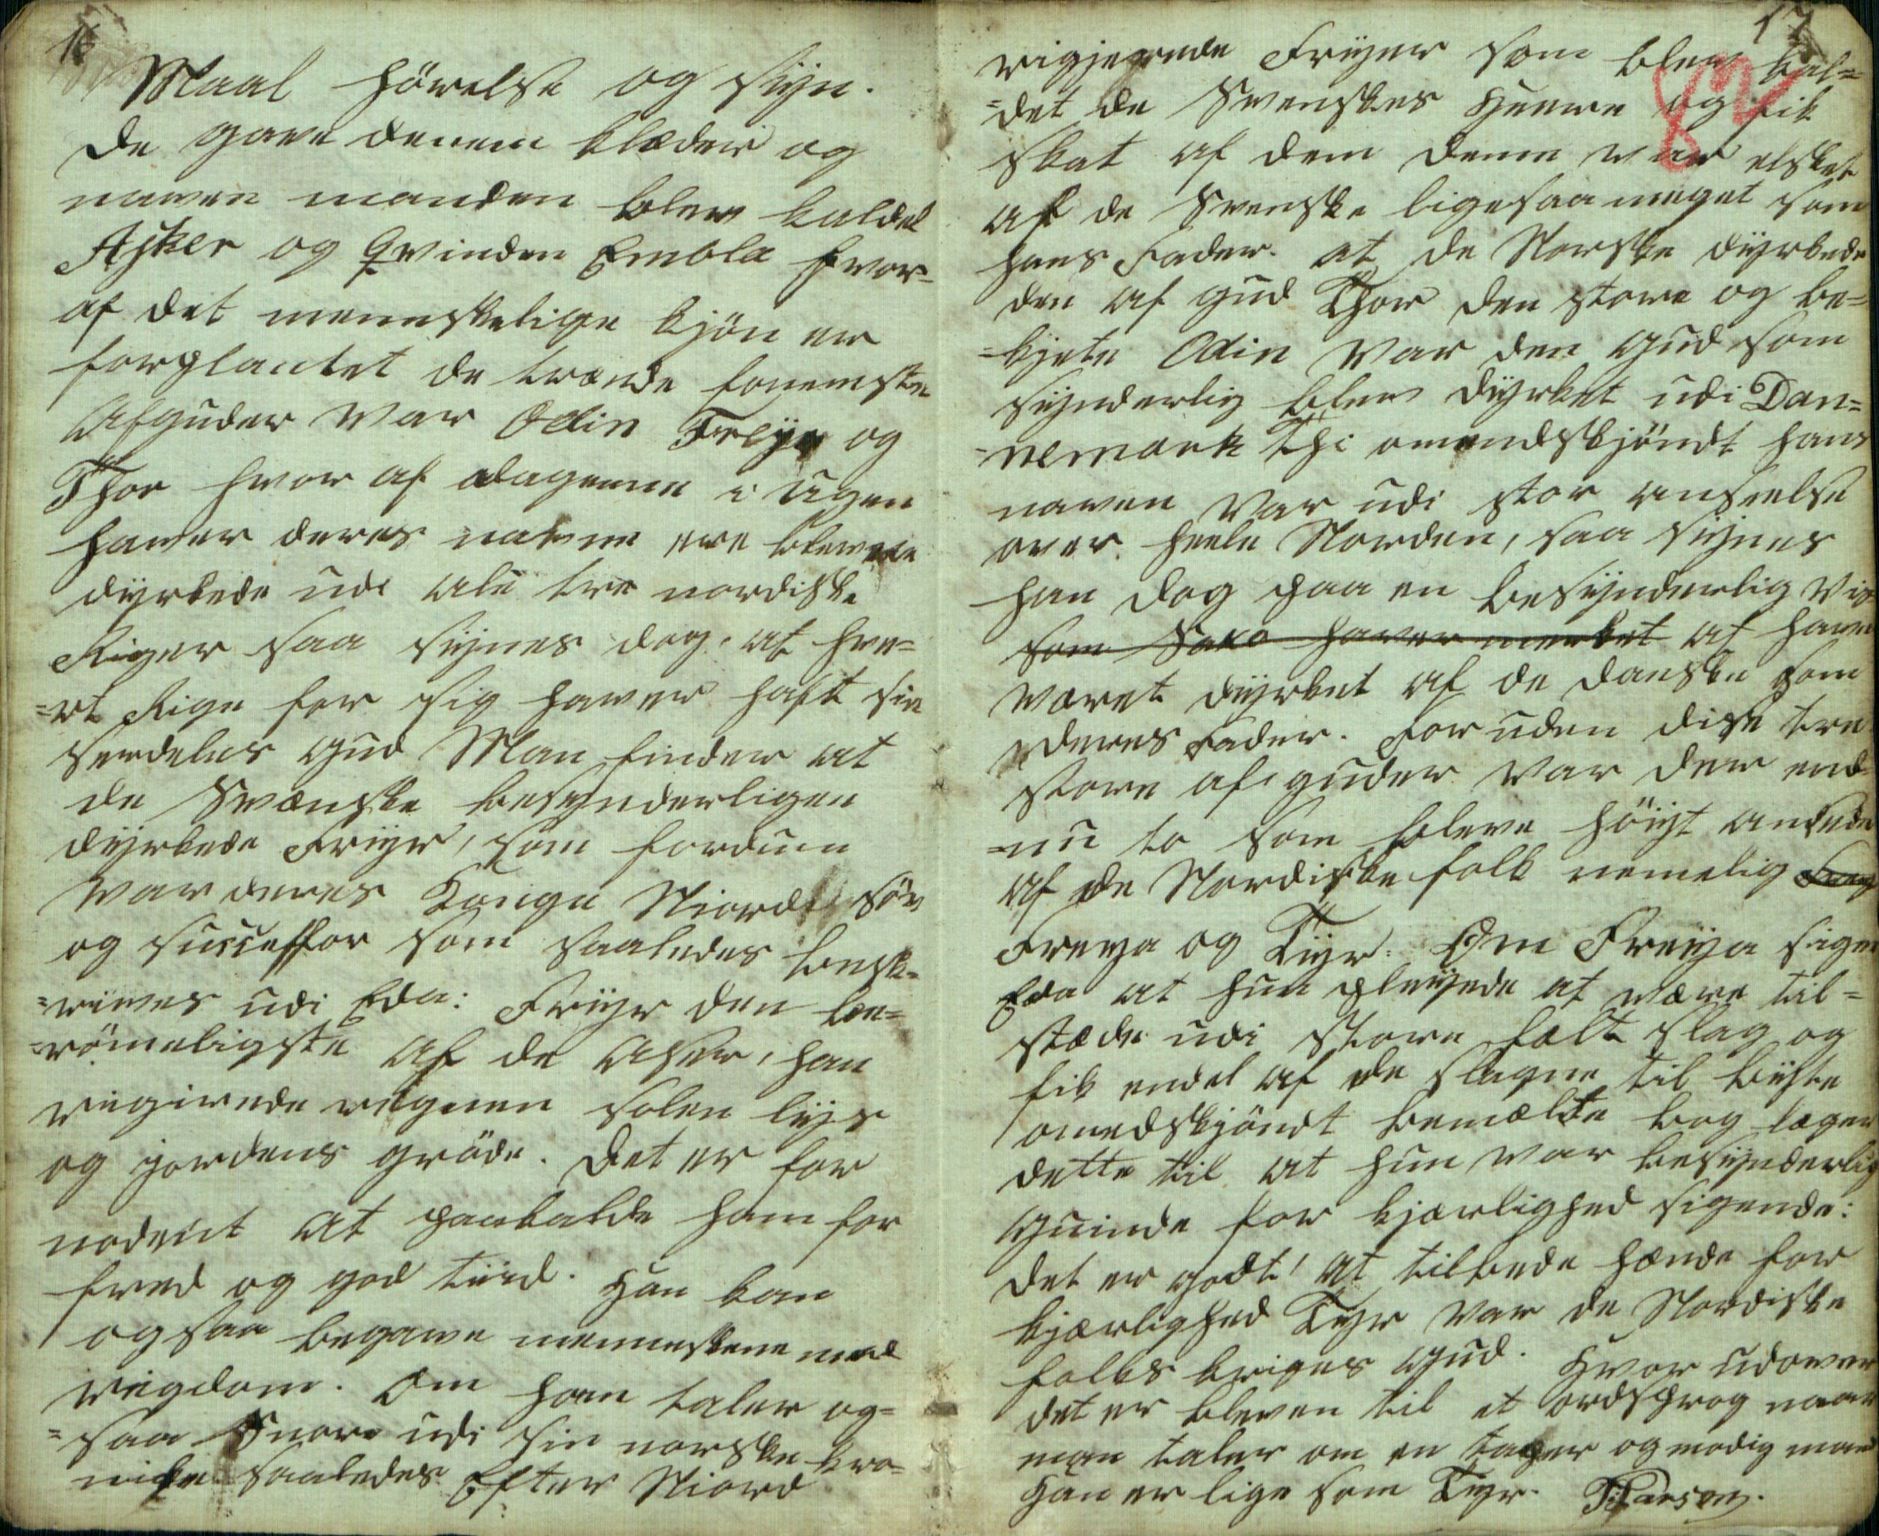 16
Maal hörelse og sÿn.
de gave dennem klæder og
naven manden blev kaldet
Asker og Qvinden Embla hvor-
af det menneskelige kjön er
forplantet de trende fornemste
Afguder var Odin Freÿr og
Thor hvor af dagenne i ugen
haver deres navne ere blevene
dÿrkede udi alle tre nordiske
Riger saa sÿnes dog at hve-
=rt Rige for sig haver haft sin
serdeles gud Man finder at
de Svænske besÿnderligen
dÿrkede Freÿr, som fordum
var deres Konge Niords sön
og successor som saaledes besk-
=rives udi Eda: Freÿr den be-
=römeligste af de Aser, han
regierede regnen solen lÿs
og jordens gröde. det er for
nodent at paakalde ham for
fred og god tiid. Han kan
ogsaa begave menneskene med
rigdom. Om ham taler og-
=saa Snore udi sin norske kro-
nike saaledes Efter Niord
17
rigjerede Freÿer som blev kal=
=det de Svenskes Herre og fik
skat af dem denne var elsket
af de Svenske ligesaa meget som
hans Fader. at de Norske dÿrkede
den af gud Thor den store og be=
=kjete Odin var den gud som
sÿnderlig blev dÿrket udi Dan=
=nemark Thi omendskjöndt hans
naven var udi stor anseelse
over heele Norden, saa sÿnes
han dog paa en besÿnderlig vis
som Saxo haver merket at have
været dÿrket af de danske som
deres Fader. for uden dise tre
store afguder var der end
=nu to som bleve höÿt ansede
af de Nordiske folk nemelig
Freya og Tyr. Om Freÿa siger
Eda at hun pleÿede at være til=
stæde udi store felt slag og
fik endel af de slagne til bÿtte
omedskjöndt bemælte bog læger
dette til at hun var besÿnderlig
guinde for kjærlighed sigende:
det er godt! at tilbede hænde for
kjærlighed Tyr var de Nordiske
folks kriges gud. Hvor udover
det er bleven til et ordsprog naar
man taler om en taper og modig mand
han er lige som Tyr.